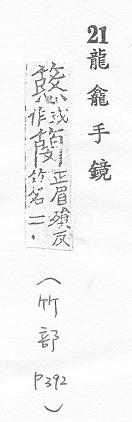 21 龍龕手鏡
或作
正眉殞反
竹名二
(竹部 P392)